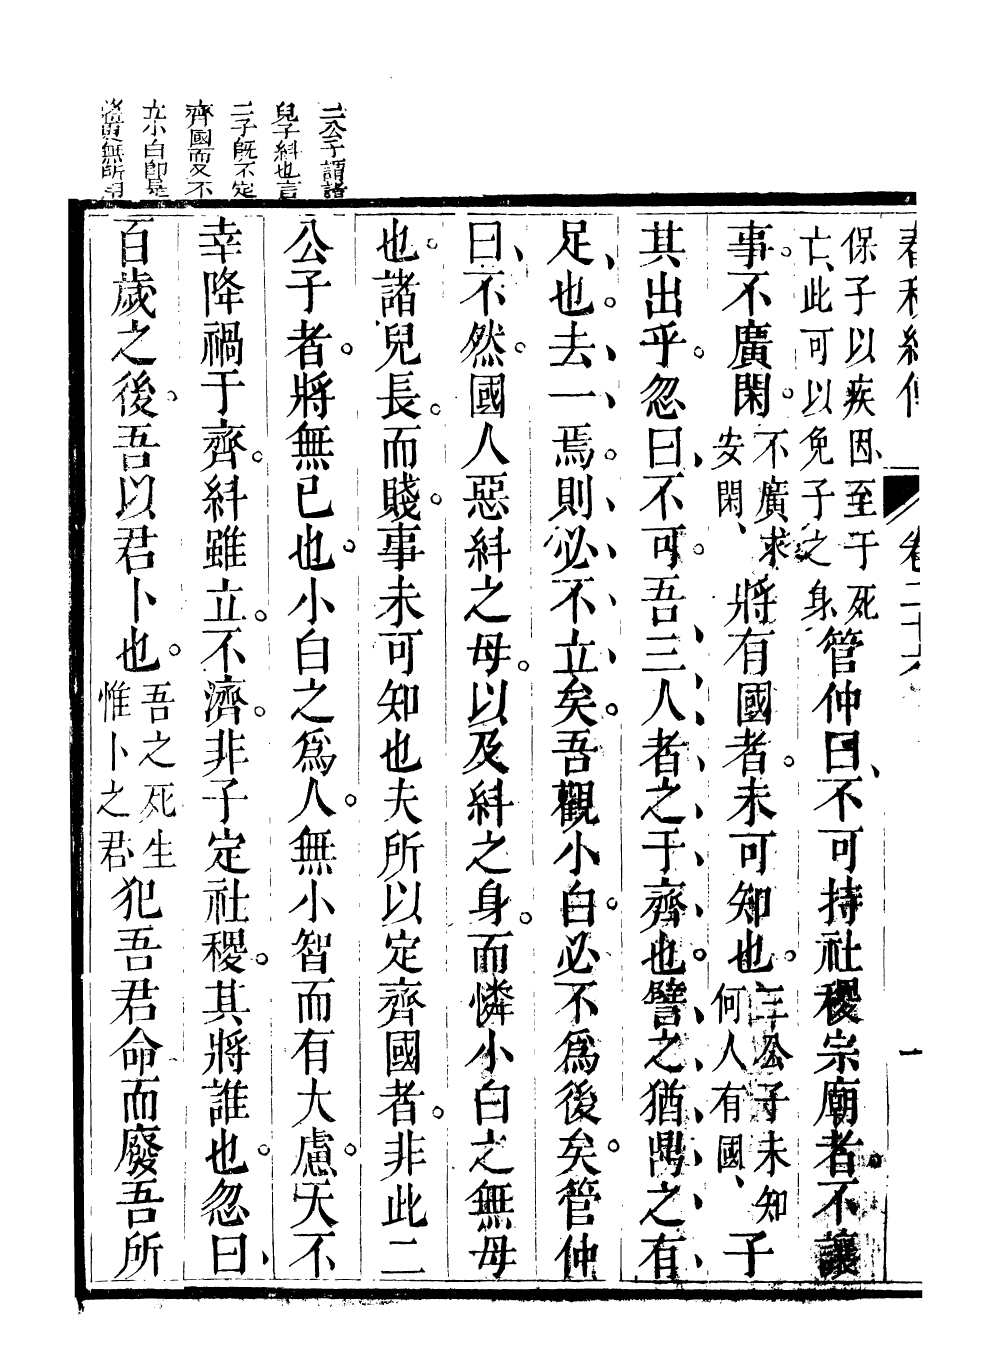 春秋經傳 卷二十 一
保子以疾因、至于死
亡、此可以免子之身
管仲曰、不可持社稷宗廟者。不讓
事。不廣閑。
不廣求
安閑、
將有國者。未可知也。
三公子未知
何人有國、
子
其出乎。忽曰、不可。吾三人者之于齊也。譬之猶鼎之有
足也。去一焉。則必不立矣。吾觀小白。必不爲後矣。管仲
曰、不然。國人惡糾之母。以及糾之身。而憐小白之無母
也。諸兒長。而賤。事未可知也夫所以定齊國者。非此二
公子者。將無已也。小白之爲人。無小智而有大慮。天不
幸降禍于齊。糾雖立。不濟。非子定社稷。其將誰也。忽曰、
百歲之後。吾以君卜也。
吾之死生
惟卜之君
犯吾君命而廢吾所
二公子謂諸
兒子糾也言
二子旣不定
齊國而又不
立小白卽是
將更無所